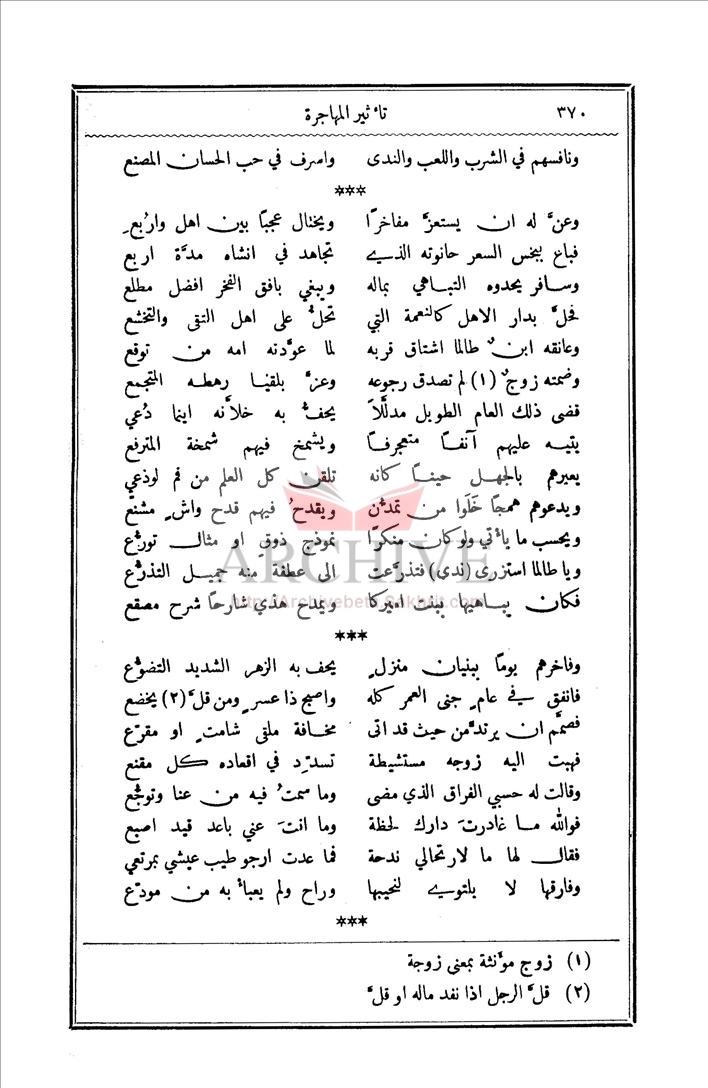 ٣٧٠ تأثير المهاجرة
ونافسهم في الشرب واللعب والندى واسرف في حب الحسان المصنع
***
وعنَّ له ان يستعزَّ مفاخرًا ويختال عجبًا بين اهل واربُعِ
فباع ببخس السعر حانوته الذي تجاهد في انشاه مدَّة اربع
وسافر يحدوه التباهي بماله ويبغي بافق الفخر افضل مطلع
فحلَّ بدار الاهل كالنعمة التي تحلُّ على اهل التقى والتخشع
وعانقه ابنٌ طالما اشتاق قربه لما عوَّدته امه من توقع
وضمته زوجٌ (١) لم تصدق رجوعه وعزَّ بلقيا رهطه المتجمع
قضى ذلك العام الطويل مدلَّلاً يحفُّ به خلاَّنه اينما دُعي
يتيه عليهم آنفًا متعجرفًا ويشمخ فيهم شمخة المترفع
يعيرهم بالجهل حينًا كانه تلقن كل العلم من فم لوذعي
ويدعوهم همجًا خَلَوا من تمدُّن ويقدحُ فيهم قدح واشٍ مشنّع
ويحسب ما يأتي ولو كان منكرًا نموذج ذوقٍ او مثال تورُّع
ويا طالما استزرى (ندى) فتذرَّعت الى عطفة منه جميل التذرُّع
فكان يباهيها ببنت اميركا ويمدح هذي شارحًا شرح مصقع
ARCHIVE
http://Archivebeta.Sakhrit.com
***
وفاخرهم يومًا ببنيان منزلٍ يحف به الزهر الشديد التضوُّع
فانفق في عامٍ جنى العمر كله واصبح ذا عسرٍ ومن قلَّ (٢) يخضع
فصمَّم ان يرتدَّ من حيث قد اتى مخافة ملقى شامتٍ او مقرّع
فهبت اليه زوجه مستشيطة تسدّد في اقعاده كل مقنع
وقالت له حسبي الفراق الذي مضى وما سمتُ فيه من عنا وتوجُّع
فوالله ما غادرتَ دارك لحظة وما انتَ عني باعد قيد اصبع
فقال لها ما لارتحالي ندحة فما عدت ارجو طيب عيشي بمرتعي
وفارقها لا يلتوي لنحيبها وراح ولم يعبأ به من مودّع
***
(١) زوج مؤنثة بمعنى زوجة
(٢) قلَّ الرجل اذا نفد ماله او قلَّ